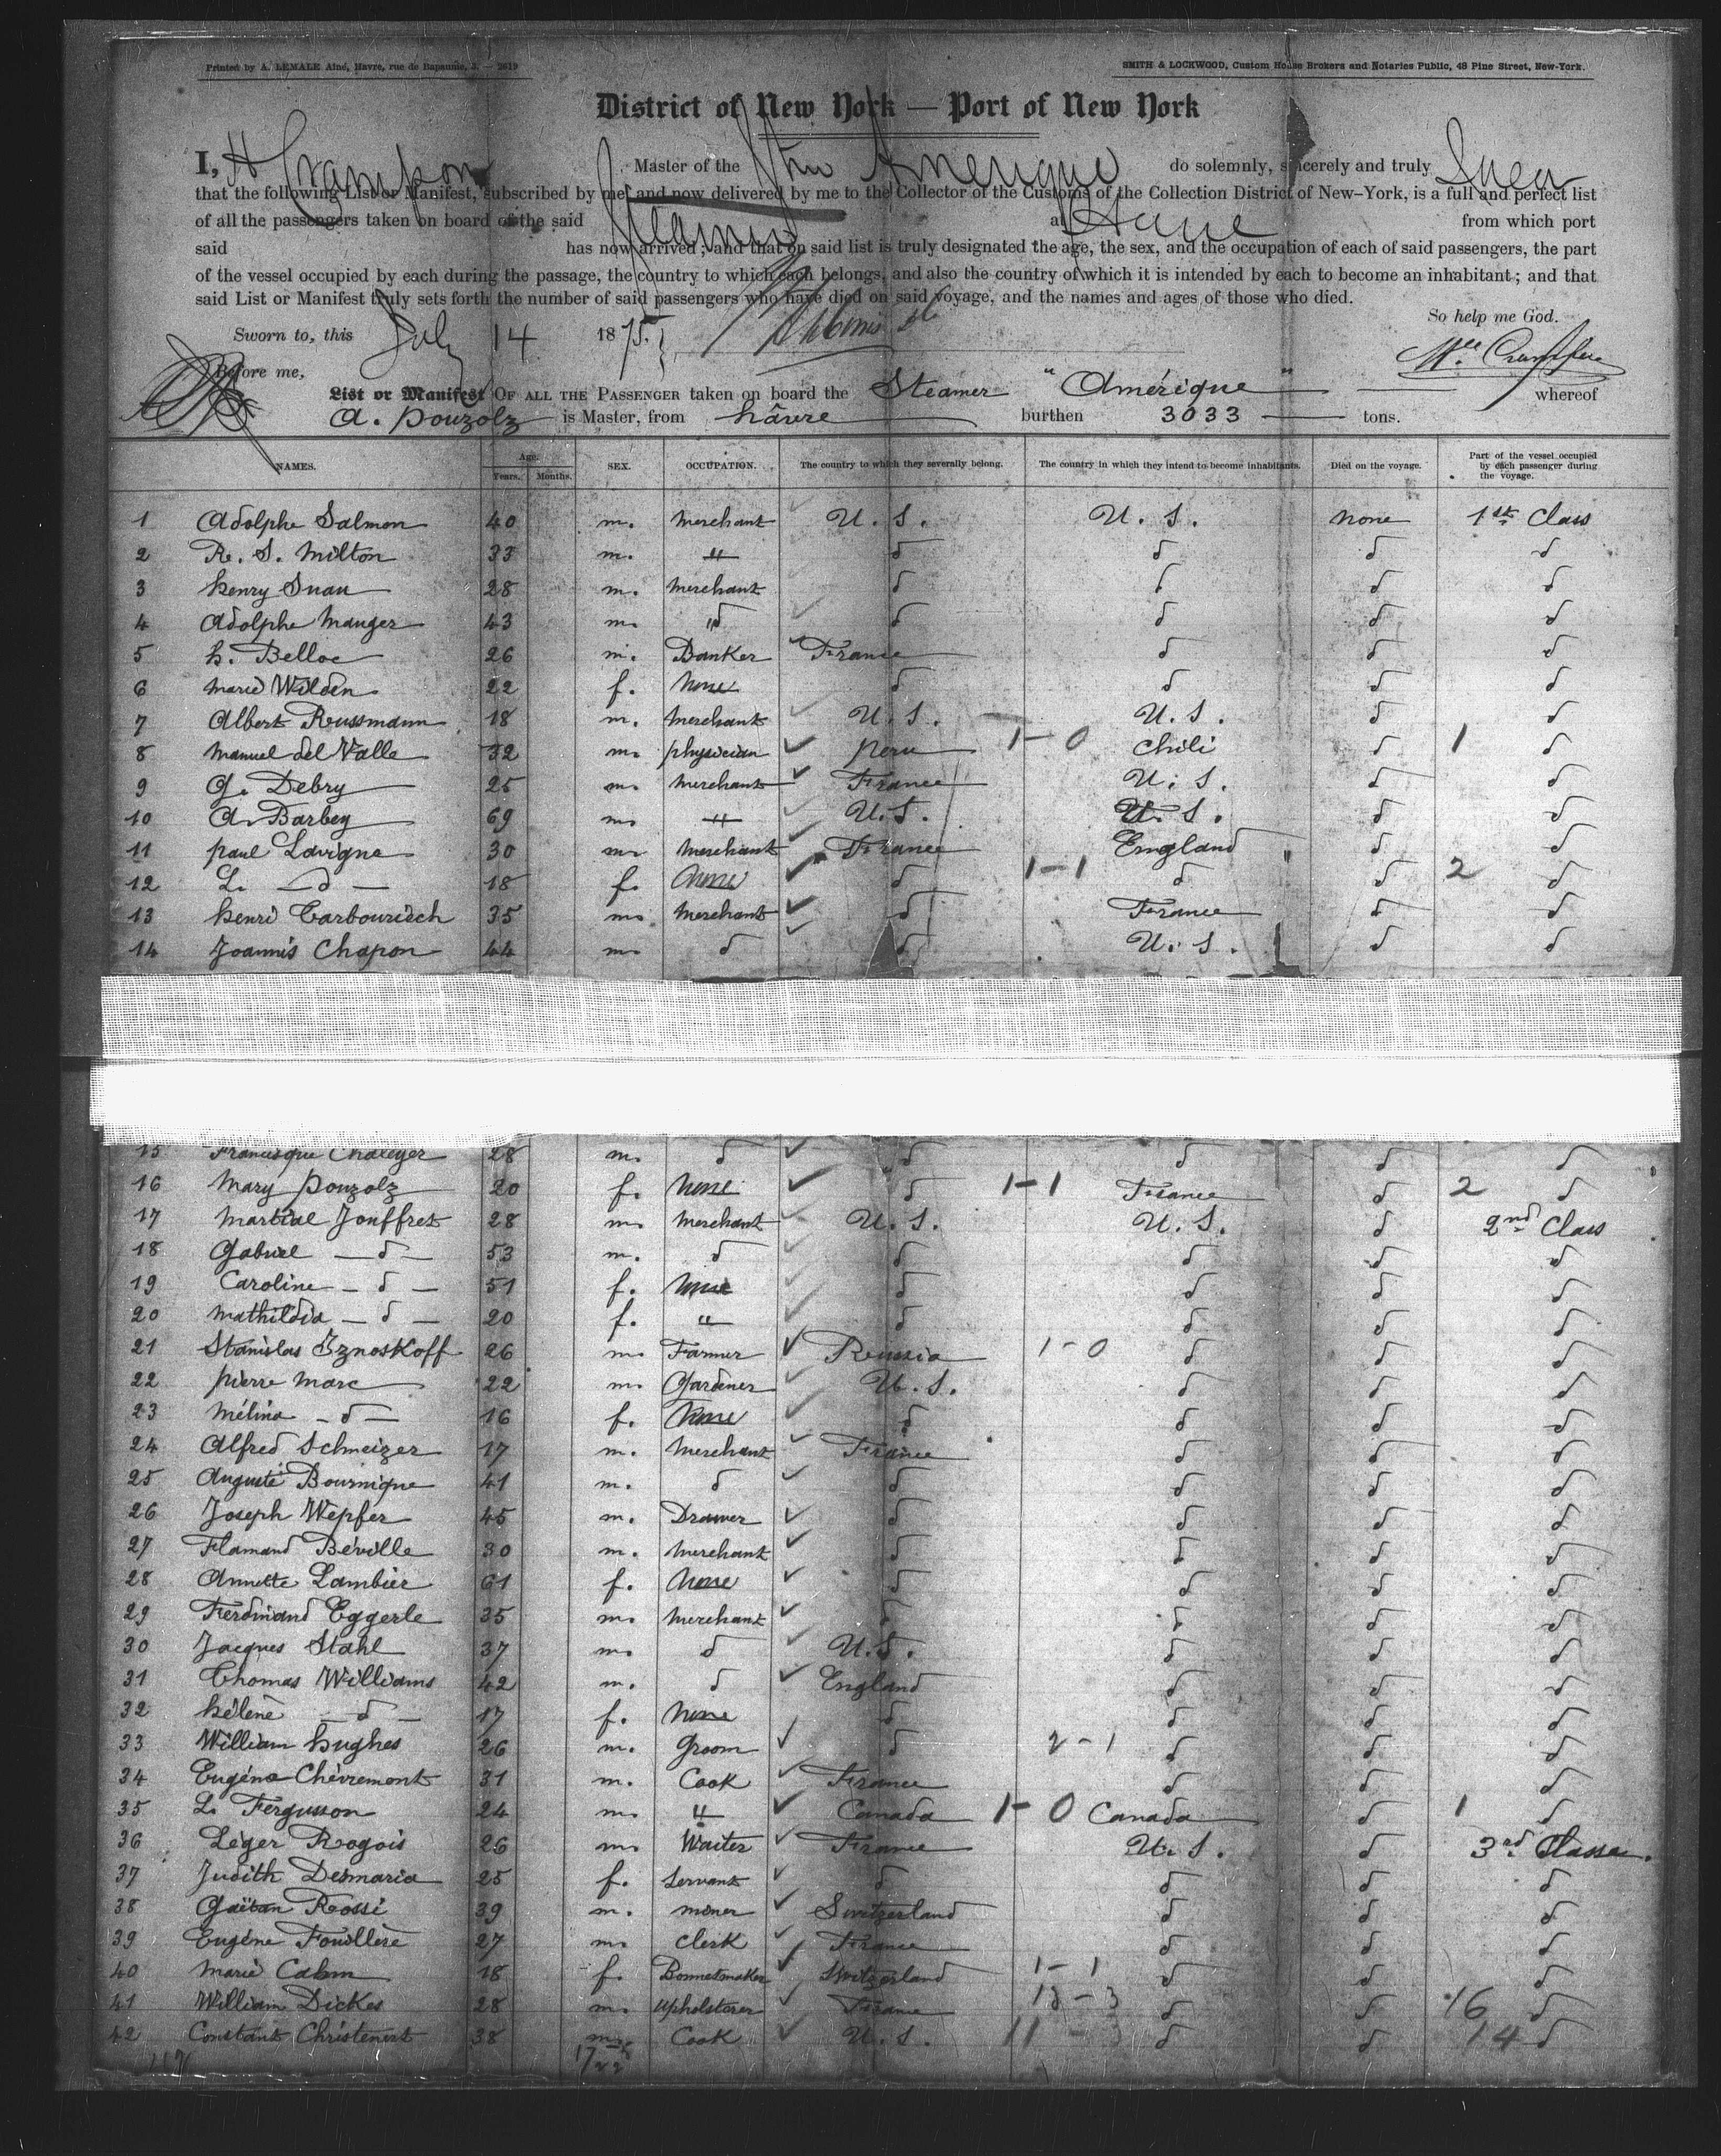 Printed by A. LEMALE Aîné, Hâvre, rue de Bapaume, 3. — 2619
SMITH & LOCKWOOD, Custom House Brokers and Notaries Public, 48 Pine Street, New-York.
District of New York — Port of New York
I, Master of the Str Amerique do solemnly, sincerely and truly Swear
that the following List or Manifest, subscribed by me, and now delivered by me to the Collector of the Customs of the Collection District of New-York, is a full and perfect list
of all the passengers taken on board of the said Steamer at Havre from which port
said has now arrived; and that on said list is truly designated the age, the sex, and the occupation of each of said passengers, the part
of the vessel occupied by each during the passage, the country to which each belongs, and also the country of which it is intended by each to become an inhabitant; and that
said List or Manifest truly sets forth the number of said passengers who have died on said voyage, and the names and ages of those who died.
So help me God.
Sworn to, this July 14 1875.
Before me,
List or Manifest OF ALL THE PASSENGER taken on board the Steamer "Amérique" whereof
A. Pouzolz is Master, from hâvre burthen 3033 tons.
NAMES. Age. Years. Months. SEX. OCCUPATION. The country to which they severally belong. The country in which they intend to become inhabitants. Died on the voyage. Part of the vessel occupied by each passenger during the voyage.
1 Adolphe Salmon 40 m. merchant U. S. U. S. none 1st Class
2 R. S. Milton 33 m. " d d d d
3 henry Suau 28 m. merchant d d d d
4 Adolphe Mauger 43 m. d d d d d
5 h. Belloc 26 m. Banker France d d d
6 Marie Wilden 22 f. None d d d d
7 Albert Reussmann 18 m. merchant U. S. U. S. d d
8 Manuel del Valle 32 m. physician Peru 1-0 Chili d 1 d
9 G. Debry 25 m. merchant France U. S. d d
10 A. Barbey 69 m. " U.S. U. S. d d
11 paul Lavigne 30 m. merchant France England d d
12 L. — d — 18 f. None d 1-1 d d 2 d
13 henri Carbourisch 35 m. merchant d France d d
14 Joannis Chapon 44 m. d d U. S. d d
15 Francisque Chaleyer 28 m. d d d d d
16 Mary Pouzolz 20 f. None d 1-1 France d 2 d
17 Martial Jouffret 28 m. merchant U. S. U. S. d 2nd Class
18 Gabriel — d — 53 m. d d d d d
19 Caroline — d — 51 f. None d d d d
20 Mathilda — d — 20 f. " d d d d
21 Stanislas Iznoskoff 26 m. Farmer Russia 1-0 d d d
22 pierre Marc 22 m. Gardner U. S. d d d
23 Mélina — d — 16 f. None d d d d
24 Alfred Schweizer 17 m. merchant France d d d
25 Auguste Bournique 41 m. d d d d d
26 Joseph Wepfer 45 m. Drawer d d d d
27 Flamand Béville 30 m. merchant d d d d
28 Annette Lambier 61 f. None d d d d
29 Ferdinand Eggerle 35 m. merchant d d d d
30 Jacques Stahl 37 m. d U.S. d d d
31 Thomas Williams 42 m. d England d d d
32 hélène — d — 17 f. None d d d d
33 William hughes 26 m. Groom d 2-1 d d d
34 Eugène Chèvremont 31 m. Cook France d d d
35 L. Fergusson 24 m. " Canada 1-0 Canada d 1 d
36 Léger Rogois 26 m. Waiter France U. S. d 3rd Classe.
37 Judith Desmaria 25 f. Servant d d d d
38 Gaëtan Rossi 39 m. miner Switzerland d d d
39 Eugène Fouillère 27 m. clerk France d d d
40 Marie Cahm 18 f. Bonnetmaker Switzerland 1-1 d d d
41 William Dickes 28 m. Upholsterer France 13-3 d d 16 d
42 Constant Christenert 38 m. Cook U. S. 11-3 d d 14 d